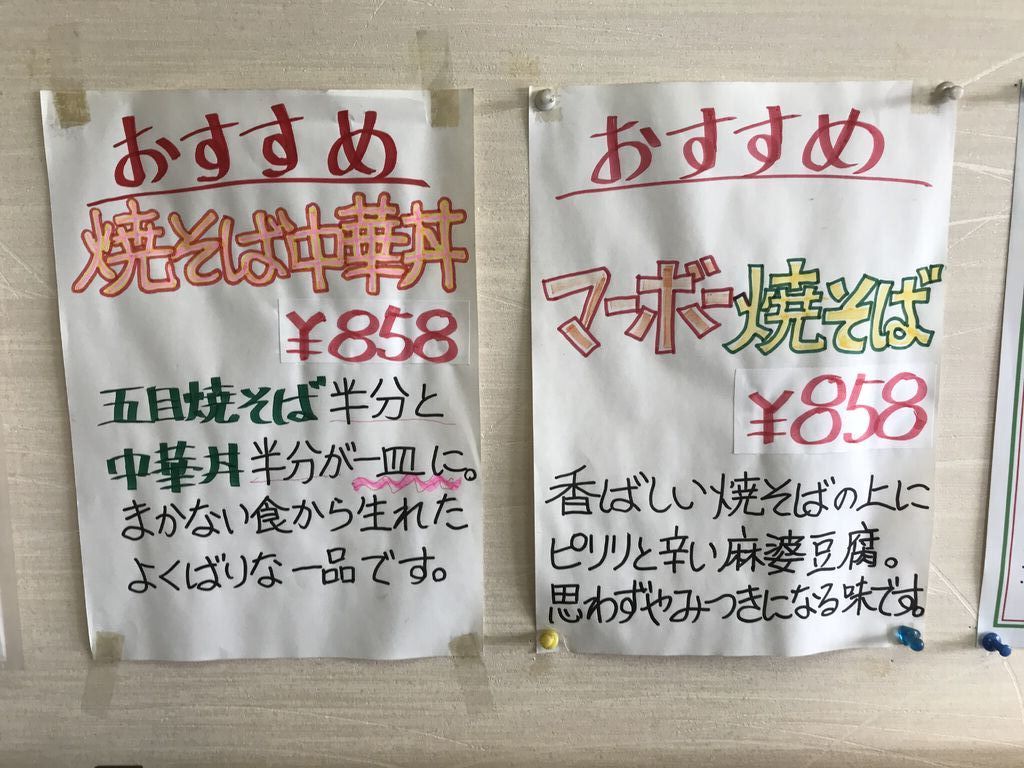 おすすめ
焼そば中華丼
¥858
五目焼そば半分と
中華丼半分が一皿に。
まかない食から生れた
よくばりな一品です。
おすすめ
マーボー焼そば
¥858
香ばしい焼そばの上に
ピリリと辛い麻婆豆腐。
思わずやみつきになる味です。